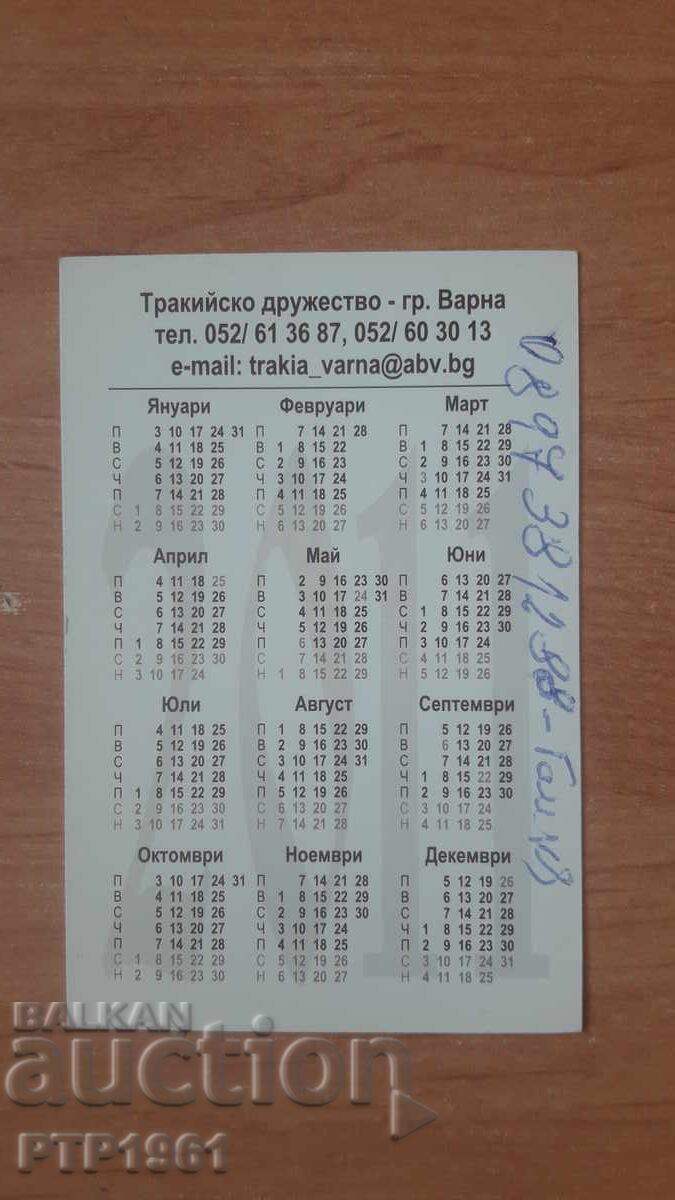 Тракийско дружество - гр. Варна
тел. 052/ 61 36 87, 052/ 60 30 13
e-mail: trakia_varna@abv.bg
Януари Февруари Март
П 3 10 17 24 31 П 7 14 21 28 П 7 14 21 28
В 4 11 18 25 В 1 8 15 22 В 1 8 15 22 29
С 5 12 19 26 С 2 9 16 23 С 2 9 16 23 30
Ч 6 13 20 27 Ч 3 10 17 24 Ч 3 10 17 24 31
П 7 14 21 28 П 4 11 18 25 П 4 11 18 25
С 1 8 15 22 29 С 5 12 19 26 С 5 12 19 26
Н 2 9 16 23 30 Н 6 13 20 27 Н 6 13 20 27
Април Май Юни
П 4 11 18 25 П 2 9 16 23 30 П 6 13 20 27
В 5 12 19 26 В 3 10 17 24 31 В 7 14 21 28
С 6 13 20 27 С 4 11 18 25 С 1 8 15 22 29
Ч 7 14 21 28 Ч 5 12 19 26 Ч 2 9 16 23 30
П 1 8 15 22 29 П 6 13 20 27 П 3 10 17 24
С 2 9 16 23 30 С 7 14 21 28 С 4 11 18 25
Н 3 10 17 24 Н 1 8 15 22 29 Н 5 12 19 26
Юли Август Септември
П 4 11 18 25 П 1 8 15 22 29 П 5 12 19 26
В 5 12 19 26 В 2 9 16 23 30 В 6 13 20 27
С 6 13 20 27 С 3 10 17 24 31 С 7 14 21 28
Ч 7 14 21 28 Ч 4 11 18 25 Ч 1 8 15 22 29
П 1 8 15 22 29 П 5 12 19 26 П 2 9 16 23 30
С 2 9 16 23 30 С 6 13 20 27 С 3 10 17 24
Н 3 10 17 24 31 Н 7 14 21 28 Н 4 11 18 25
Октомври Ноември Декември
П 3 10 17 24 31 П 7 14 21 28 П 5 12 19 26
В 4 11 18 25 В 1 8 15 22 29 В 6 13 20 27
С 5 12 19 26 С 2 9 16 23 30 С 7 14 21 28
Ч 6 13 20 27 Ч 3 10 17 24 Ч 1 8 15 22 29
П 7 14 21 28 П 4 11 18 25 П 2 9 16 23 30
С 1 8 15 22 29 С 5 12 19 26 С 3 10 17 24 31
Н 2 9 16 23 30 Н 6 13 20 27 Н 4 11 18 25
2011
BALKAN
auction
PTP1961